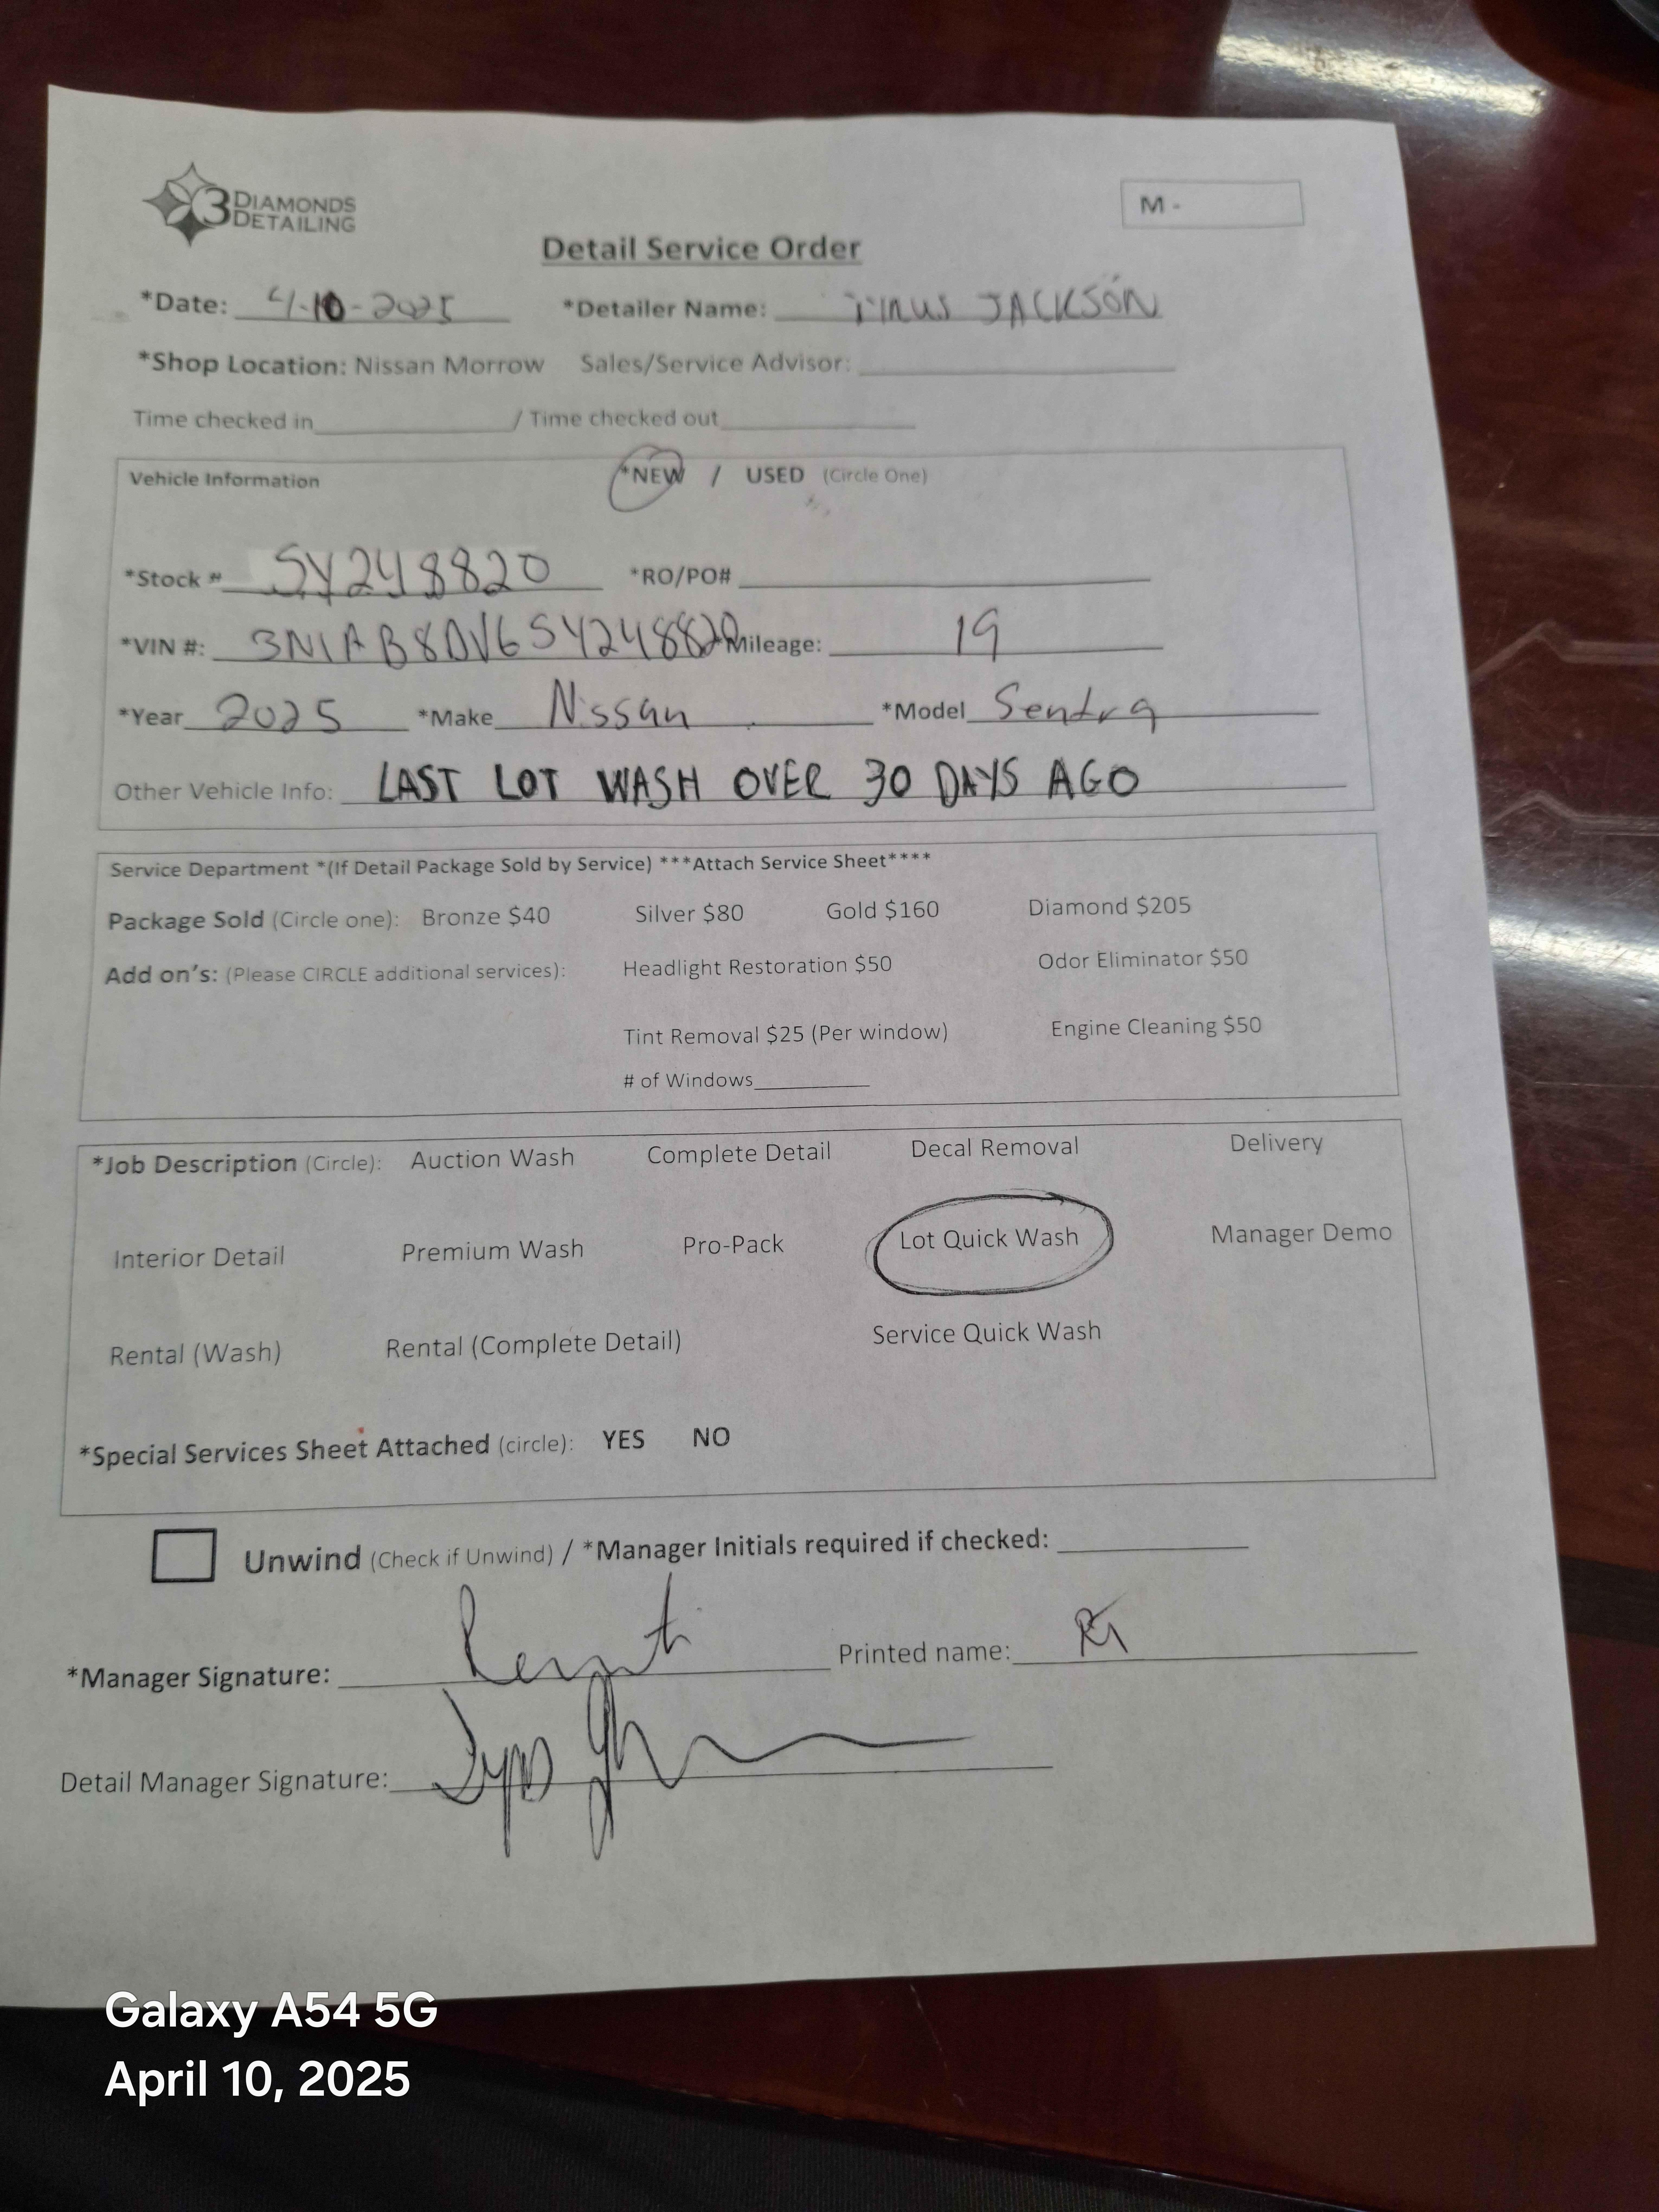 3 DIAMONDS
DETAILING
M -
Detail Service Order
*Date: 4-10-2025 *Detailer Name: JACKSON
*Shop Location: Nissan Morrow Sales/Service Advisor:
Time checked in / Time checked out
Vehicle Information *NEW / USED (Circle One)
*Stock # SY248820 *RO/PO#
*VIN #: 3N1AB8DV6SY248820 Mileage: 19
*Year 2025 *Make Nissan *Model Sentra
Other Vehicle Info: LAST LOT WASH OVER 30 DAYS AGO
Service Department *(If Detail Package Sold by Service) ***Attach Service Sheet****
Package Sold (Circle one): Bronze $40 Silver $80 Gold $160 Diamond $205
Add on's: (Please CIRCLE additional services): Headlight Restoration $50 Odor Eliminator $50
Tint Removal $25 (Per window) Engine Cleaning $50
# of Windows
*Job Description (Circle): Auction Wash Complete Detail Decal Removal Delivery
Interior Detail Premium Wash Pro-Pack Lot Quick Wash Manager Demo
Rental (Wash) Rental (Complete Detail) Service Quick Wash
*Special Services Sheet Attached (circle): YES NO
Unwind (Check if Unwind) / *Manager Initials required if checked:
*Manager Signature: Printed name:
Detail Manager Signature:
Galaxy A54 5G
April 10, 2025